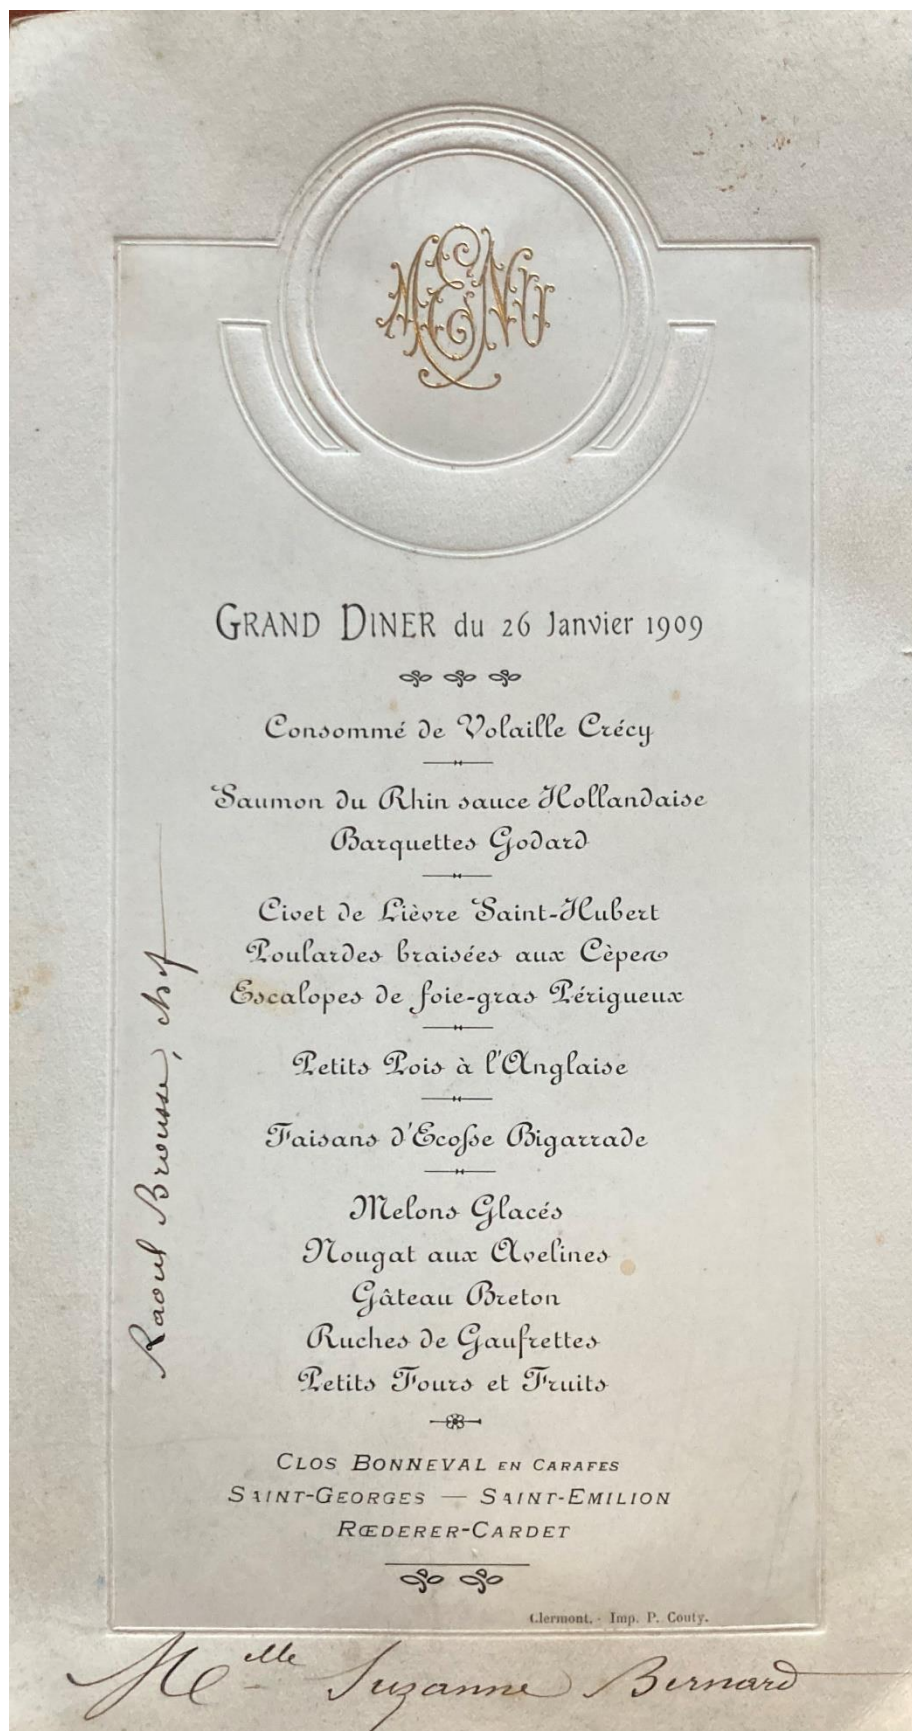 MENU
GRAND DINER du 26 Janvier 1909
Consommé de Volaille Crécy
Saumon du Rhin sauce Hollandaise
Barquettes Godard
Civet de Lièvre Saint-Hubert
Poulardes braisées aux Cèpes
Escalopes de foie-gras Périgueux
Petits Pois à l'Anglaise
Faisans d'Ecosse Bigarrade
Melons Glacés
Nougat aux Avelines
Gâteau Breton
Ruches de Gaufrettes
Petits Fours et Fruits
CLOS BONNEVAL EN CARAFES
SAINT-GEORGES — SAINT-EMILION
RŒDERER-CARDET
Clermont. - Imp. P. Couty.
Raoul Brousse, chef
Melle Suzanne Bernard